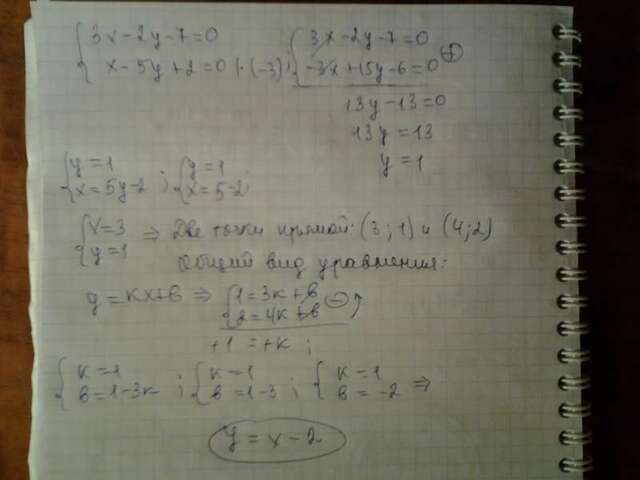 {3x-2y-7=0 {3x-2y-7=0
{x-5y+2=0 |·(-3); {-3x+15y-6=0 ⊕
13y-13=0
13y=13
y=1
{y=1 ; {y=1
{x=5y-2 {x=5-2;
{x=3
{y=1 ⇒ Две точки прямой: (3;1) и (4;2)
Общий вид уравнения:
y=kx+в ⇒ {1=3k+в
{2=4k+в ⊖
+1=+k;
{k=1 ; {k=1 ; {k=1
{в=1-3k {в=1-3 {в=-2 ⇒
y=x-2